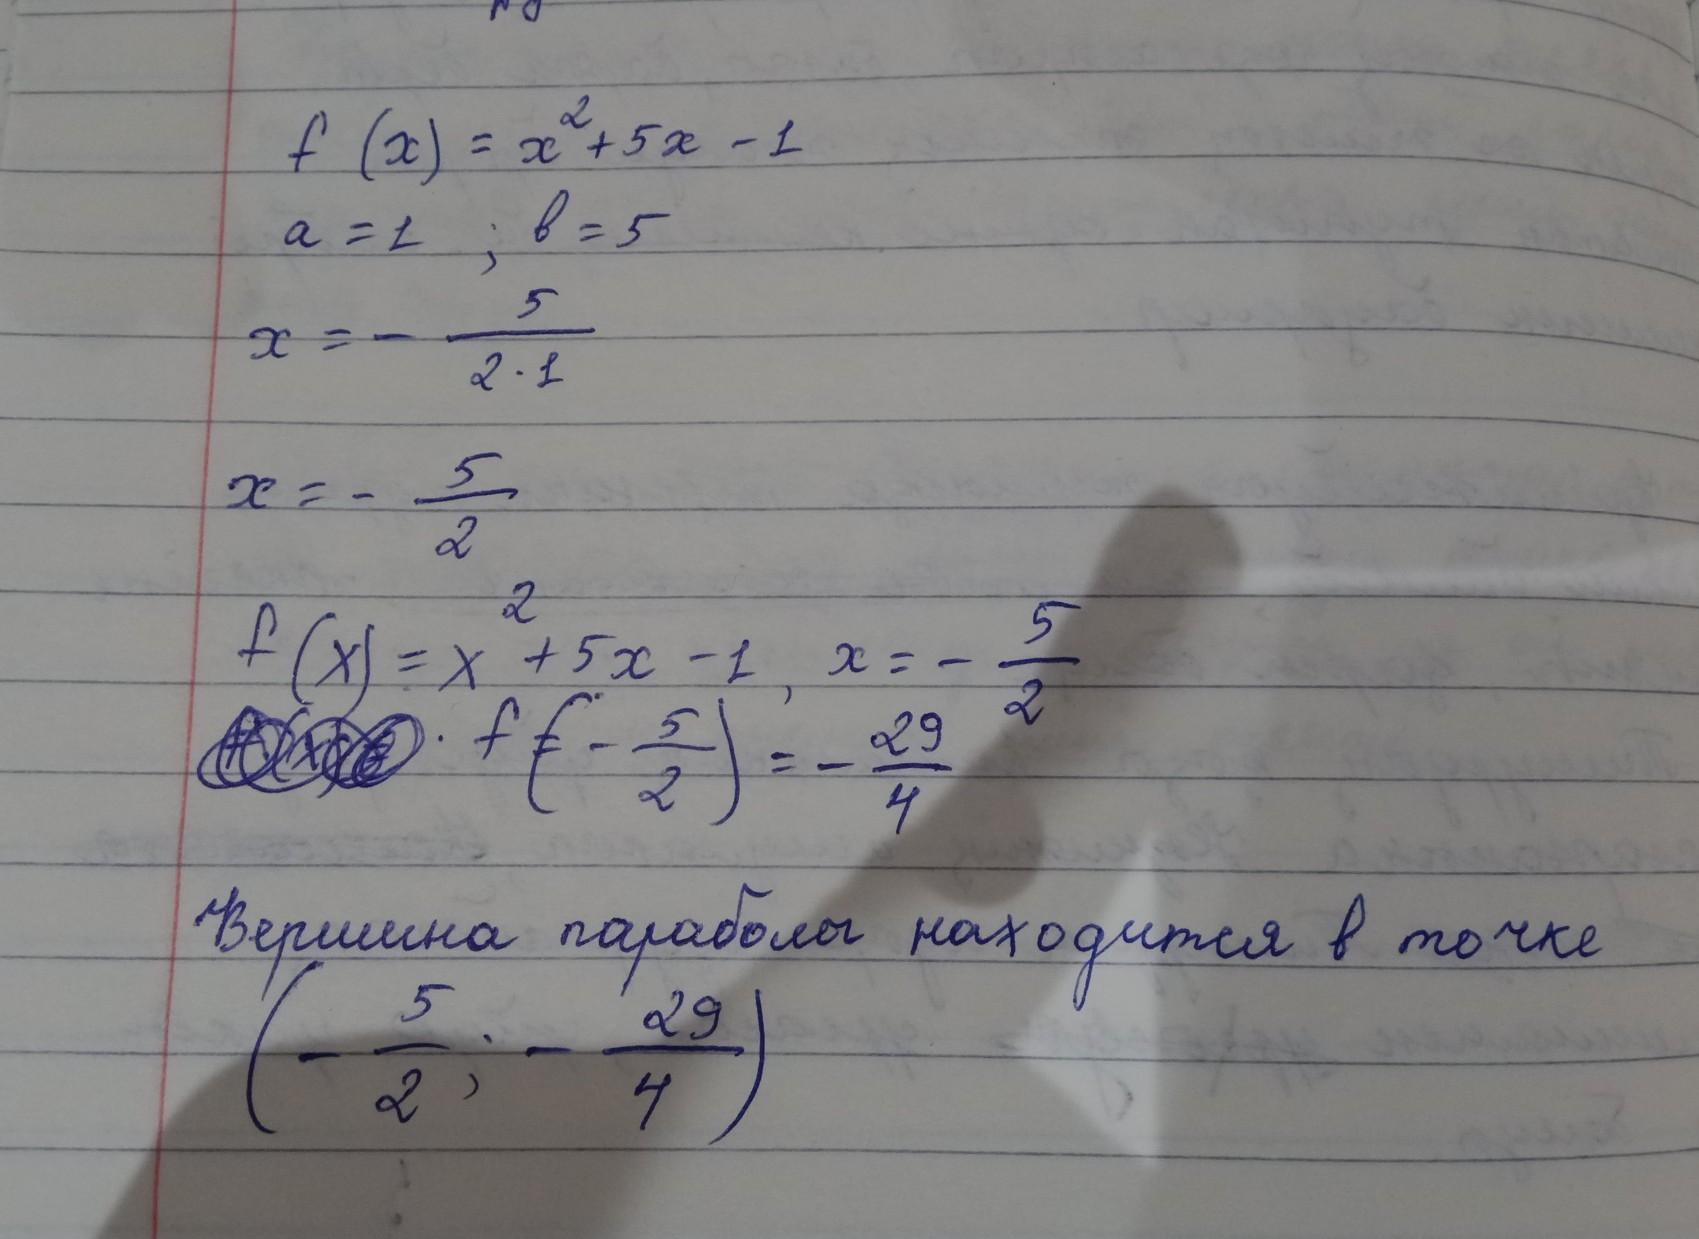 f (x) = x² + 5x - 1
a = 1 ; b = 5
x = - 5/(2·1)
x = - 5/2
f(x) = x² + 5x - 1, x = - 5/2
f(- 5/2) = - 29/4
Вершина параболы находится в точке
(- 5/2 ; - 29/4)